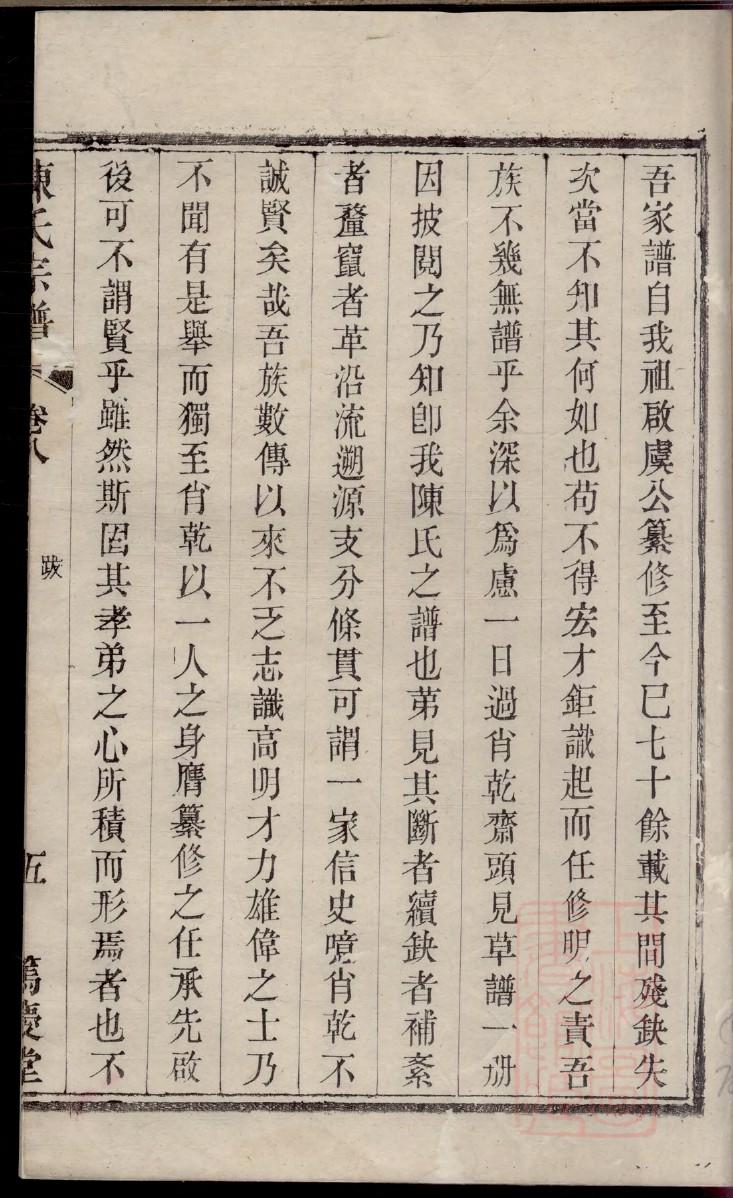 吾家譜自我祖啟虞公纂修至今已七十餘載其間殘缺失
次當不知其何如也苟不得宏才鉅識起而任修明之責吾
族不幾無譜乎余深以爲慮一日過肖乾齋頭見草譜一册
因披閱之乃知卽我陳氏之譜也苐見其斷者續缺者補紊
者釐竄者革沿流遡源支分條貫可謂一家信史噫肖乾不
誠賢矣哉吾族數傳以來不乏志識高明才力雄偉之士乃
不聞有是舉而獨至肖乾以一人之身膺纂修之任承先啟
後可不謂賢乎雖然斯固其孝弟之心所積而形焉者也不
陳氏宗譜 卷八 跋 五 篤慶堂